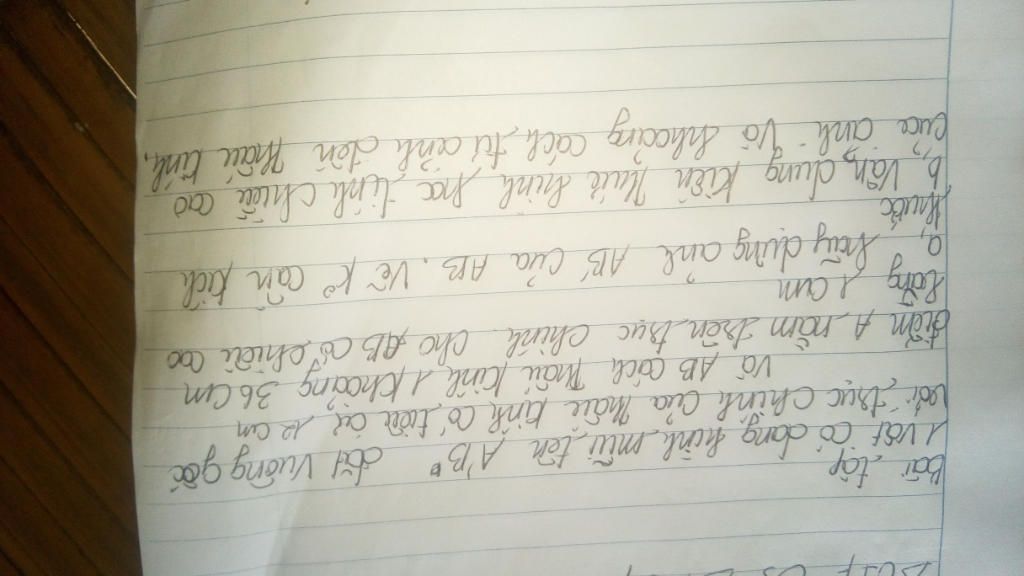 Bài tập
1 vật có dạng hình mũi tên A'B' đặt vuông góc
với trục chính của thấu kính có tiêu cự 12 cm
Và AB cách thấu kính 1 khoảng 36 cm
điểm A nằm trên trục chính. Cho AB có chiều cao
bằng 1 cm
a, hãy dựng ảnh AB' của AB. Vẽ k° cần kích
thước
b, Vận dụng kiến thức hình học tính chiều cao
của ảnh và khoảng cách từ ảnh đến thấu kính,